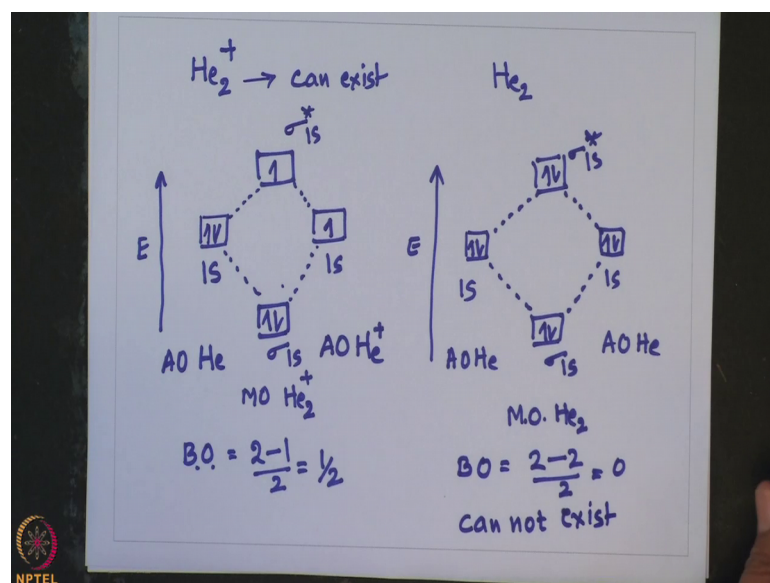 He₂⁺ → can exist
σ*1s
1↓ 1
E
1↓ 1
1s 1s
1↓
σ1s
AO He AO He⁺
MO He₂⁺
B.O. = 2-1/2 = 1/2
He₂
σ*1s
1↓
E
1↓ 1↓
1s 1s
1↓
σ1s
AO He AO He
M.O. He₂
BO = 2-2/2 = 0
can not exist
NPTEL